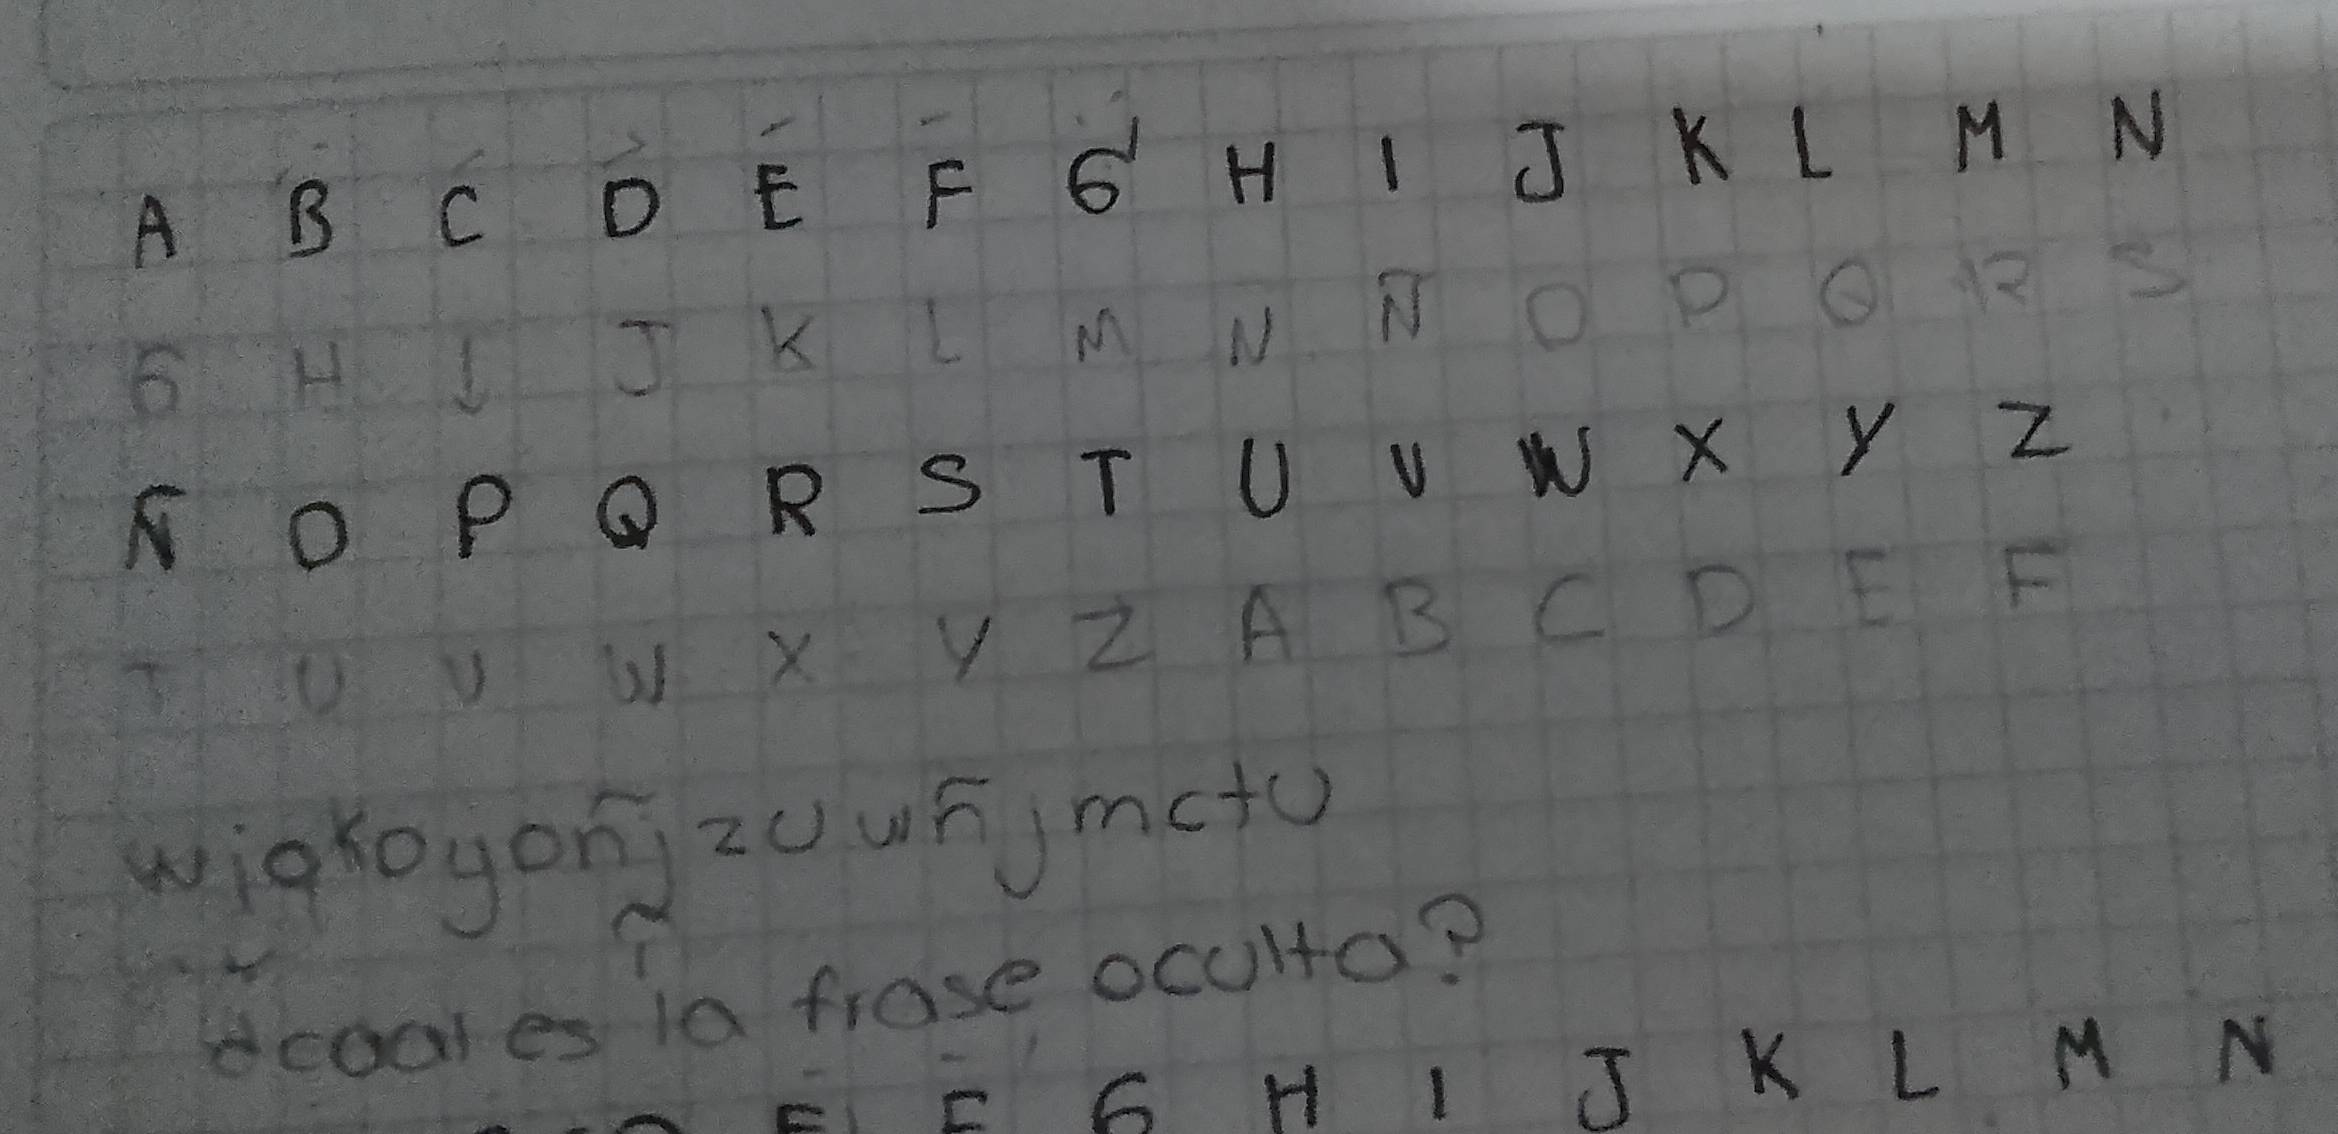 A B C D E F G H I J K L M N
G H I J K L M N Ñ O P Q R S
Ñ O P Q R S T U V W X Y Z
T U V W X Y Z A B C D E F
wjqkoyoñj zu wñjmctu
¿cual es la frase oculta?
E F G H I J K L M N